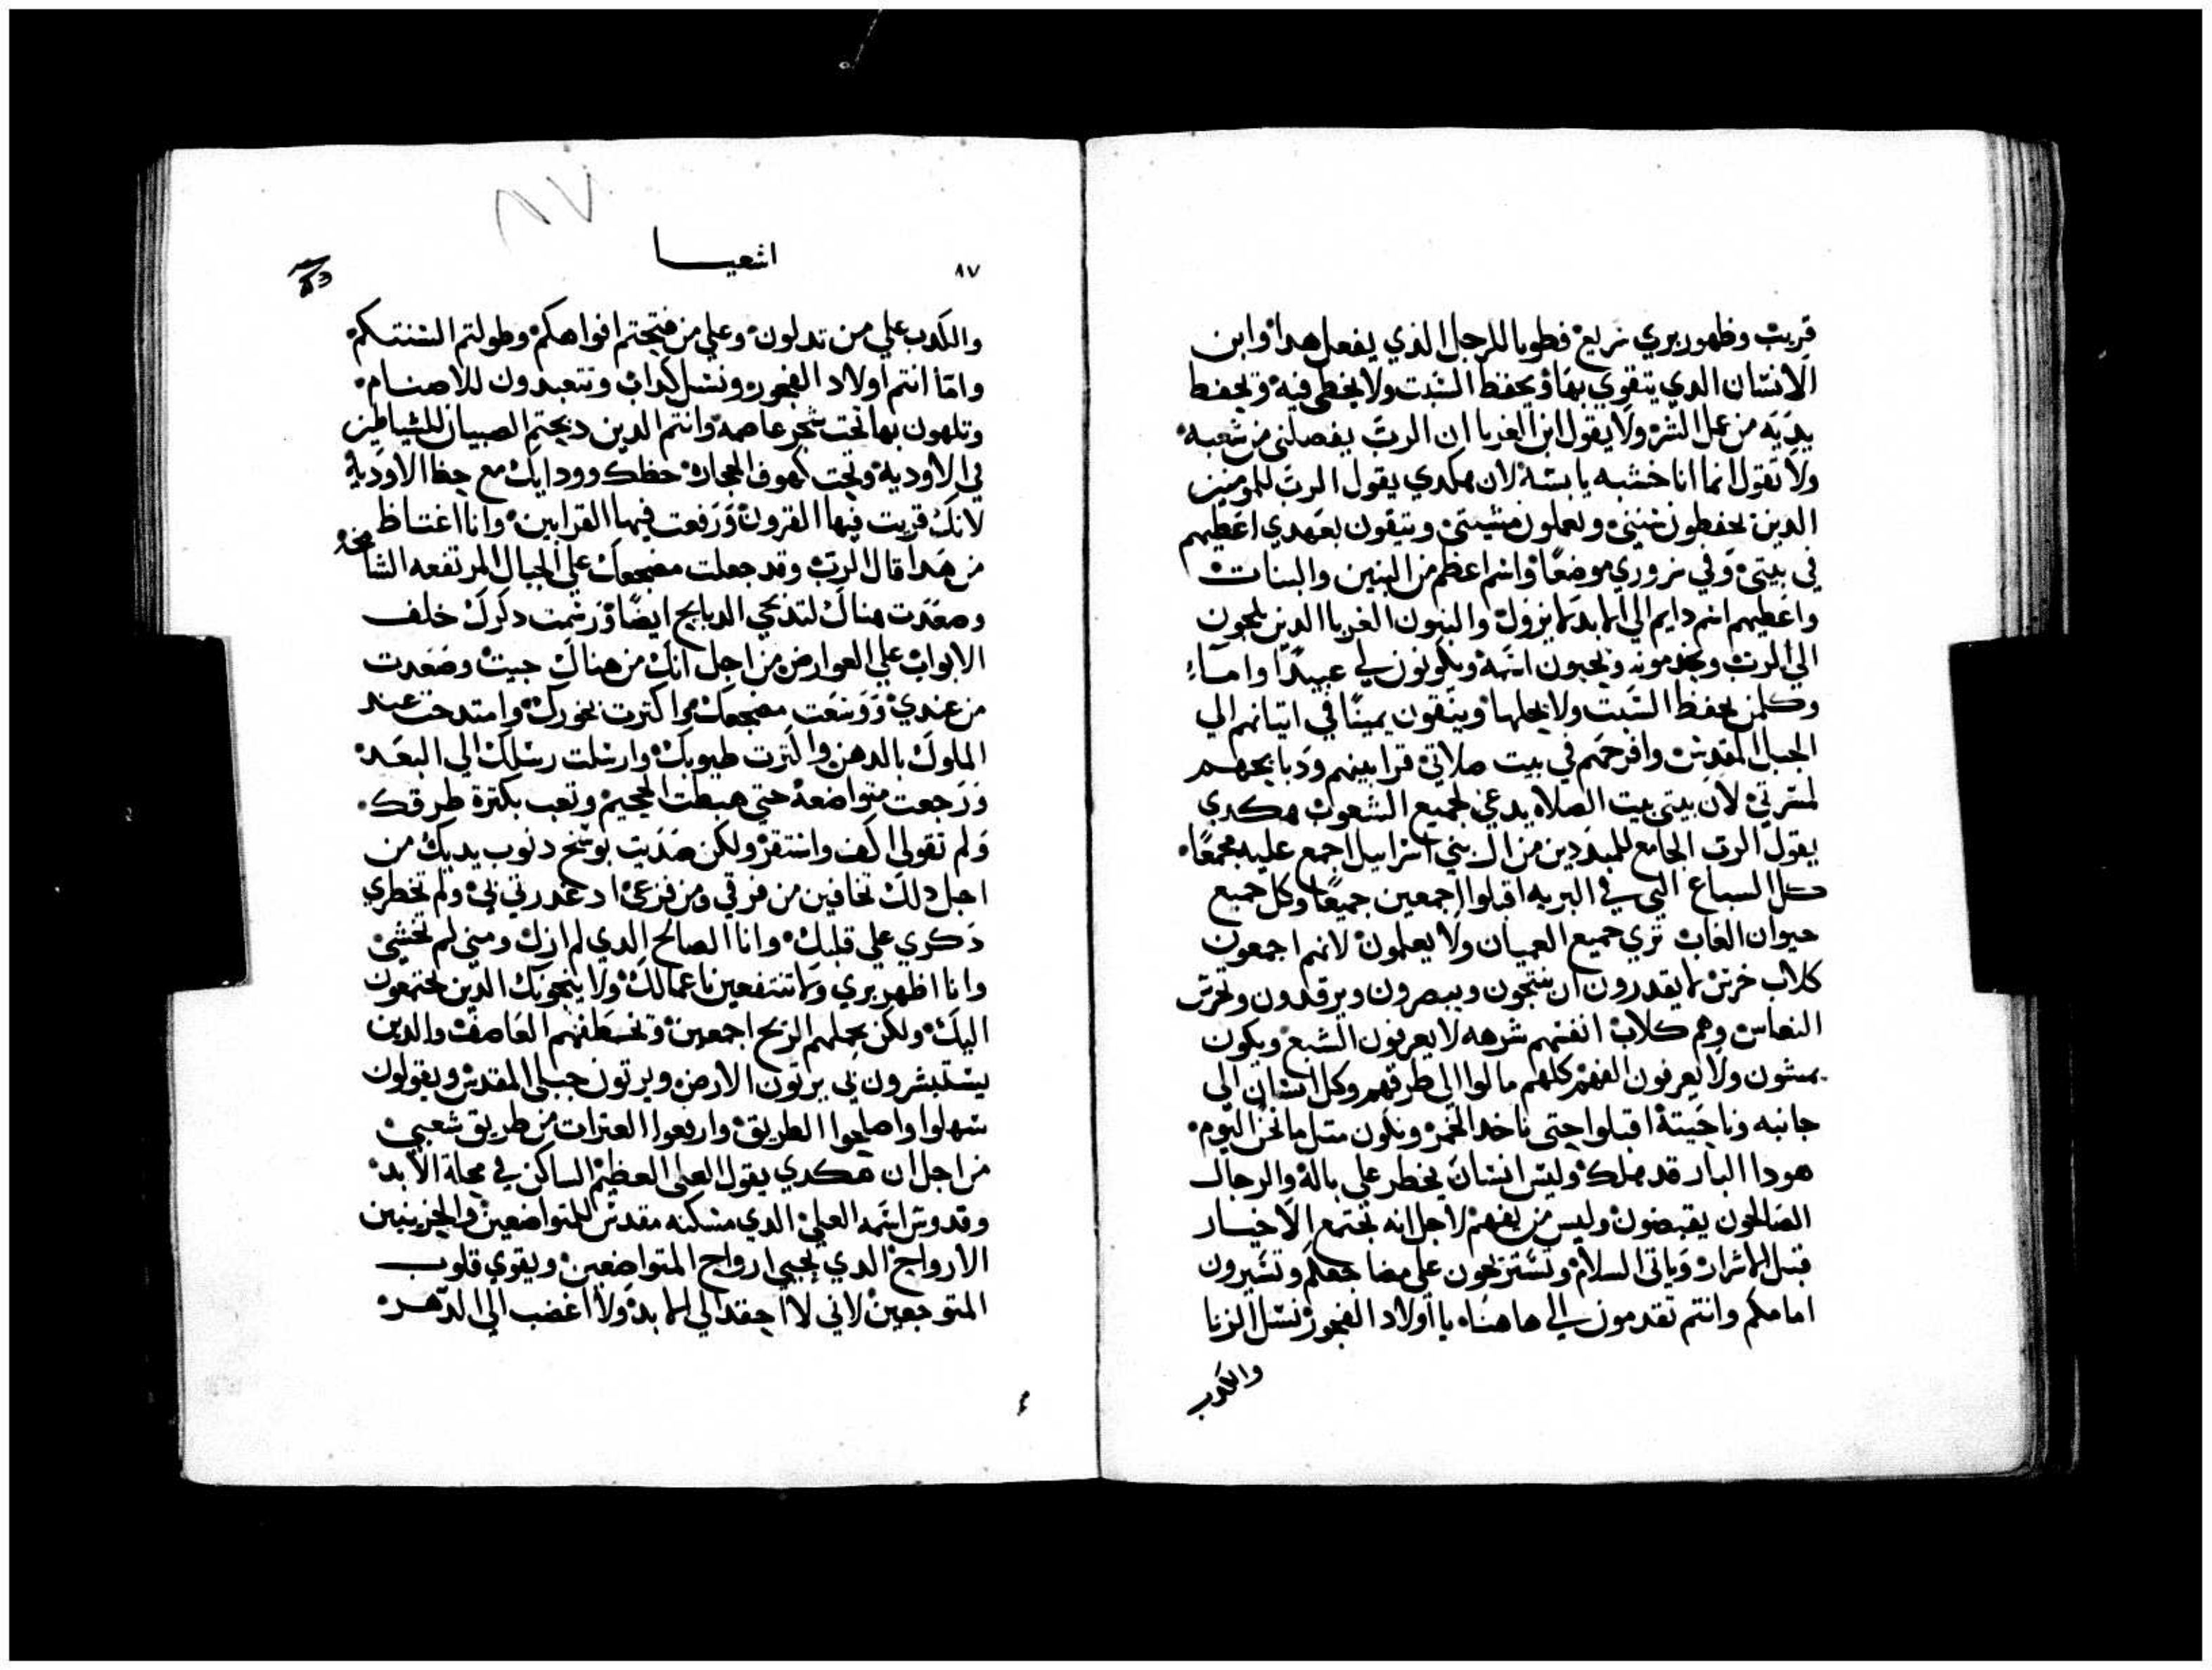 قربت وظهور بري سريع فطوبا للرجل الذي يفعل هدا وابن
الانسان الدي يتقوي بها ويحفظ السبت ولا يخطي فيه ويحفظ
يديه من عمل الشر ولا يقول ابن الغربا ان الرب يفصلني من شعبه
ولا تقول انما انا خشبه يابسه لان هكدي يقول الرب للمومنين
الدين يحفطون سبتي ويعملون مشيتي ويتقون بعهدي اعطيهم
في بيتي وفي سروري موضعًا واسم اعظم من البنين والبنات
واعطيهم اسم دايم الي الابد لا يزول والبنون الغربا الدين يلجون
الي الرب ويخدمونه ويحبون اسمه ويكونون لي عبيدًا وامآء
وكلمن يحفظ السبت ولا يحلها ويتقون يمينًا في اتيانهم الي
الجبل المقدس وافرحهم في بيت صلاتي قرابينهم ودبايحهم
لمسرتي لان بيتي بيت الصلاه يدعي لجميع الشعوب هكدي
يقول الرب الجامع للمبددين من ال بني اسراييل اجمع عليه مجمعًا
كل السباع التي في البريه اقبلوا اجمعين جميعًا وكل جميع
حيوان الغاب تري جميع العميان ولا يعلمون لانهم اجمعون
كلاب خرس لا يقدرون ان ينبحون ويبصرون ويرقدون وتحرس
النعاس وهم كلاب انفسهم شرهه لا يعرفون الشبع ويكون
يمشون ولا يعرفون الفهم كلهم مالوا الي طرقهم وكل انسان الي
جانبه وناحيته اقبلوا حتي ناخد الخمر ويكون متل ما نحن اليوم
هودا البار قد هلك وليس انسان يخطر علي باله والرجال
الصالحون يقبضون وليس من يفهم لاجل انه تجتمع الاخيار
قبل الاشرار وياتي السلام وتستريحون علي مضاجعكم وتسيرون
امامكم وانتم تقدمون الي هاهناه يا اولاد الفجور نسل الزنا
والكدب
٨٧
٨٧
اشعيا
والكدب علي من تدلون وعلي من فتحتم افواهكم وطولتم السنتكم
وامّا انتم اولاد الفجور ونسل كداب وتتعبدون للاصنام
وتلهون بها تحت شجر عاصمه وانتم الدين دبحتم الصبيان للشياطين
في الاودية وتحت كهوف الحجارة حظك وودايك مع حظ الاودية
لانك قربت فيها القرون ورفعت فيها القرابين وانا اغتاظ
من هدا قال الرب وقد جعلت مضجعك علي الجبال المرتفعه الشامخه
وصعدت هناك لتدبحي الدبايح ايضًا ورسمت دكرك خلف
الابواب علي العوارض من اجل انك من هناك جيت وصعدت
من عندي ووسعت مضجعك واكترت بخورك وامتدحت عند
الملوك بالدهن واكترت طيوبك وارسلت رسلك الي البعد
ورجعت متواضعة حتي هبطت الجحيم وتعب بكترة طرقك
ولم تقولي اكف واستقر ولكن صديت بوسخ دنوب يديك من
اجل دلك تخافين من فرقي ومن فزعي اد غدرتي بي ولم تخطري
دكري علي قلبك وانا الصالح الدي لم ازل ومني لم تخشي
وانا اظهر بري ولا تنتفعين باعمالك ولا ينجونك الدين تجتمعون
اليك ولكن يحملهم الريح اجمعين وتخطفهم العاصف والدين
يستبشرون بي يرتون الارض ويرتون جبلي المقدس ويقولون
سهلوا واصلحوا الطريق وارفعوا العترات من طريق شعبي
من اجل ان هكدي يقول العلي العظيم الساكن في محلة الابد
وقدوس اسمه العلي الدي مسكنه مقدس للمتواضعين والحزينين
الارواح الدي يحيي ارواح المتواضعين ويقوي قلوب
المتوجعين لاني لا احقد الي الابد ولا اغضب الي الدهر